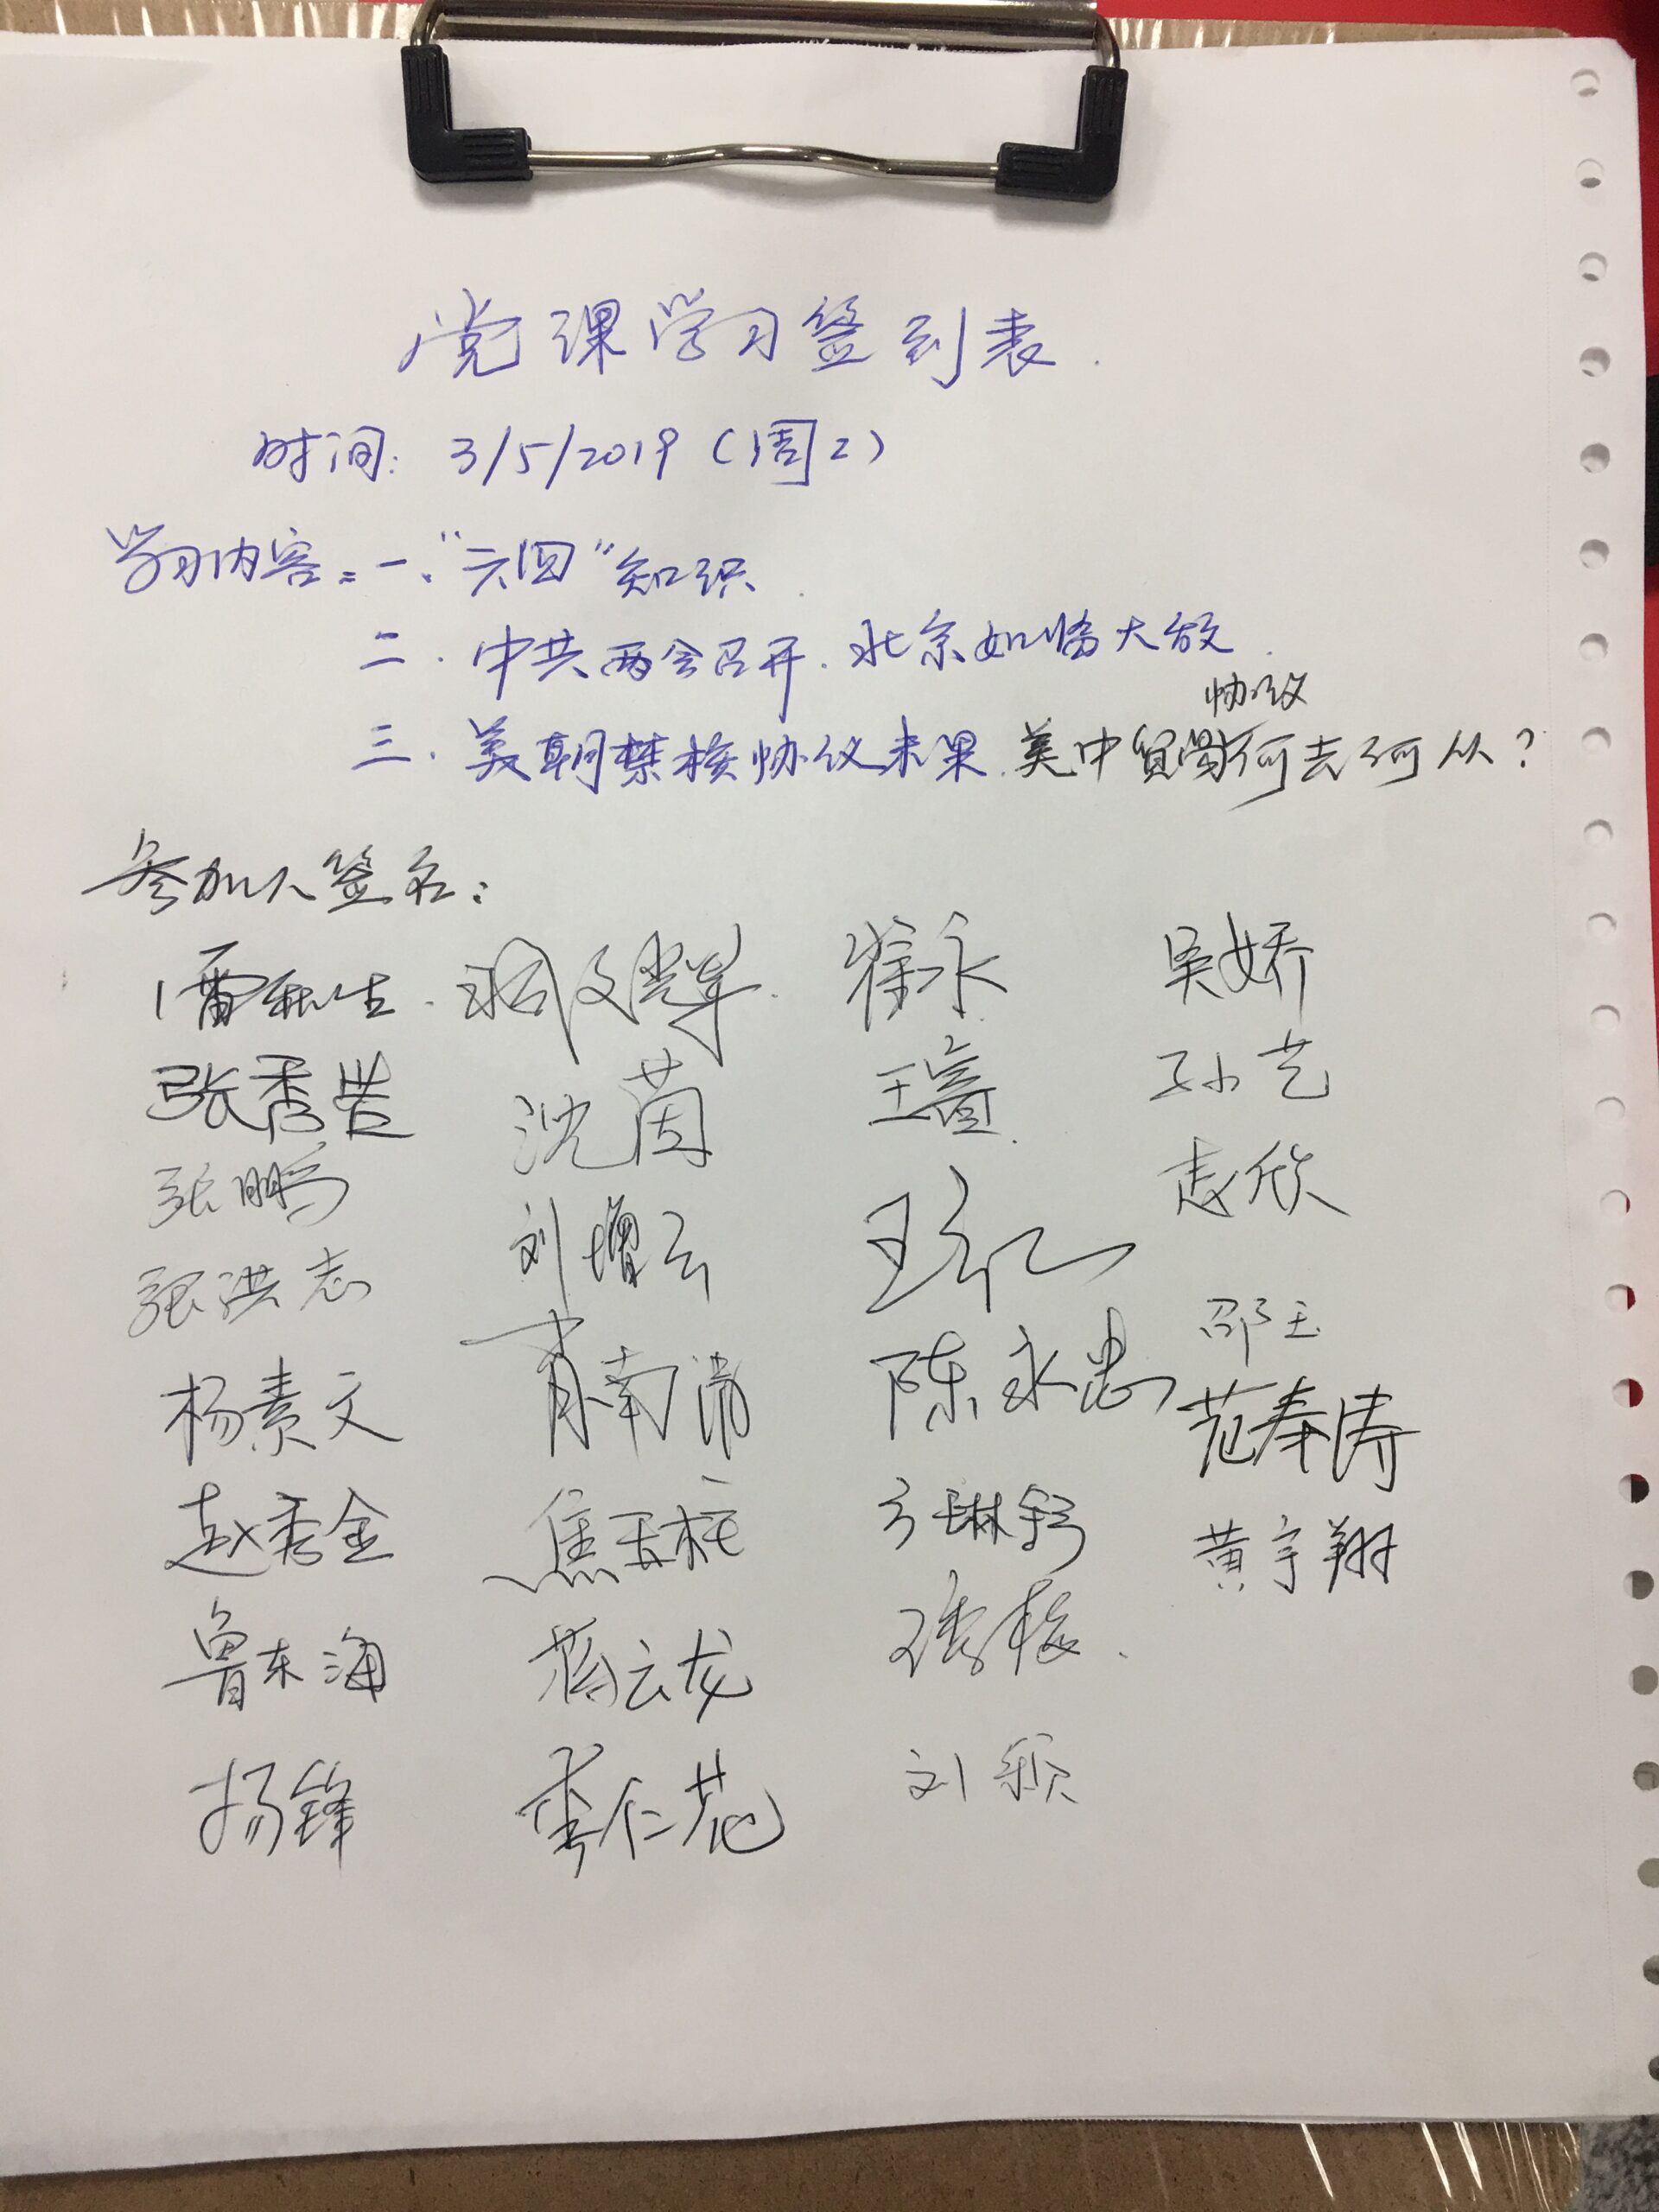 党课学习签到表.
时间: 3/5/2019 (周2)
学习内容: 一、“六四”知识.
二. 中共两会召开. 北京如临大敌.
协议
三. 美朝禁核协议未果. 美中贸易何去何从?
参加人签名:
徐永 吴娇
张秀芸 沈茵 孙艺
张鹏 刘增云 志欣
张洪志 邵玉
杨素文 肖南 陈永忠 范寿涛
赵秀金 焦玉柱 方琳 黄宇翔
鲁东海 蒋云龙
杨锋 季仁花 刘颖